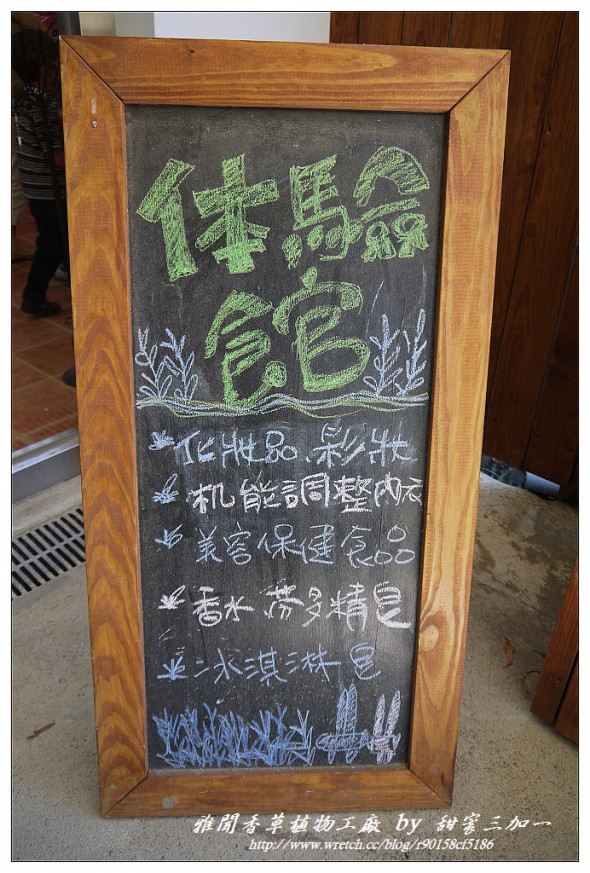 体驗
館
化妝品、彩妝
机能調整內衣
美容保健食品
香水 芬多精皂
冰淇淋皂
雅聞香草植物工廠 by 甜蜜三加一
http://www.wretch.cc/blog/r90158cf5186